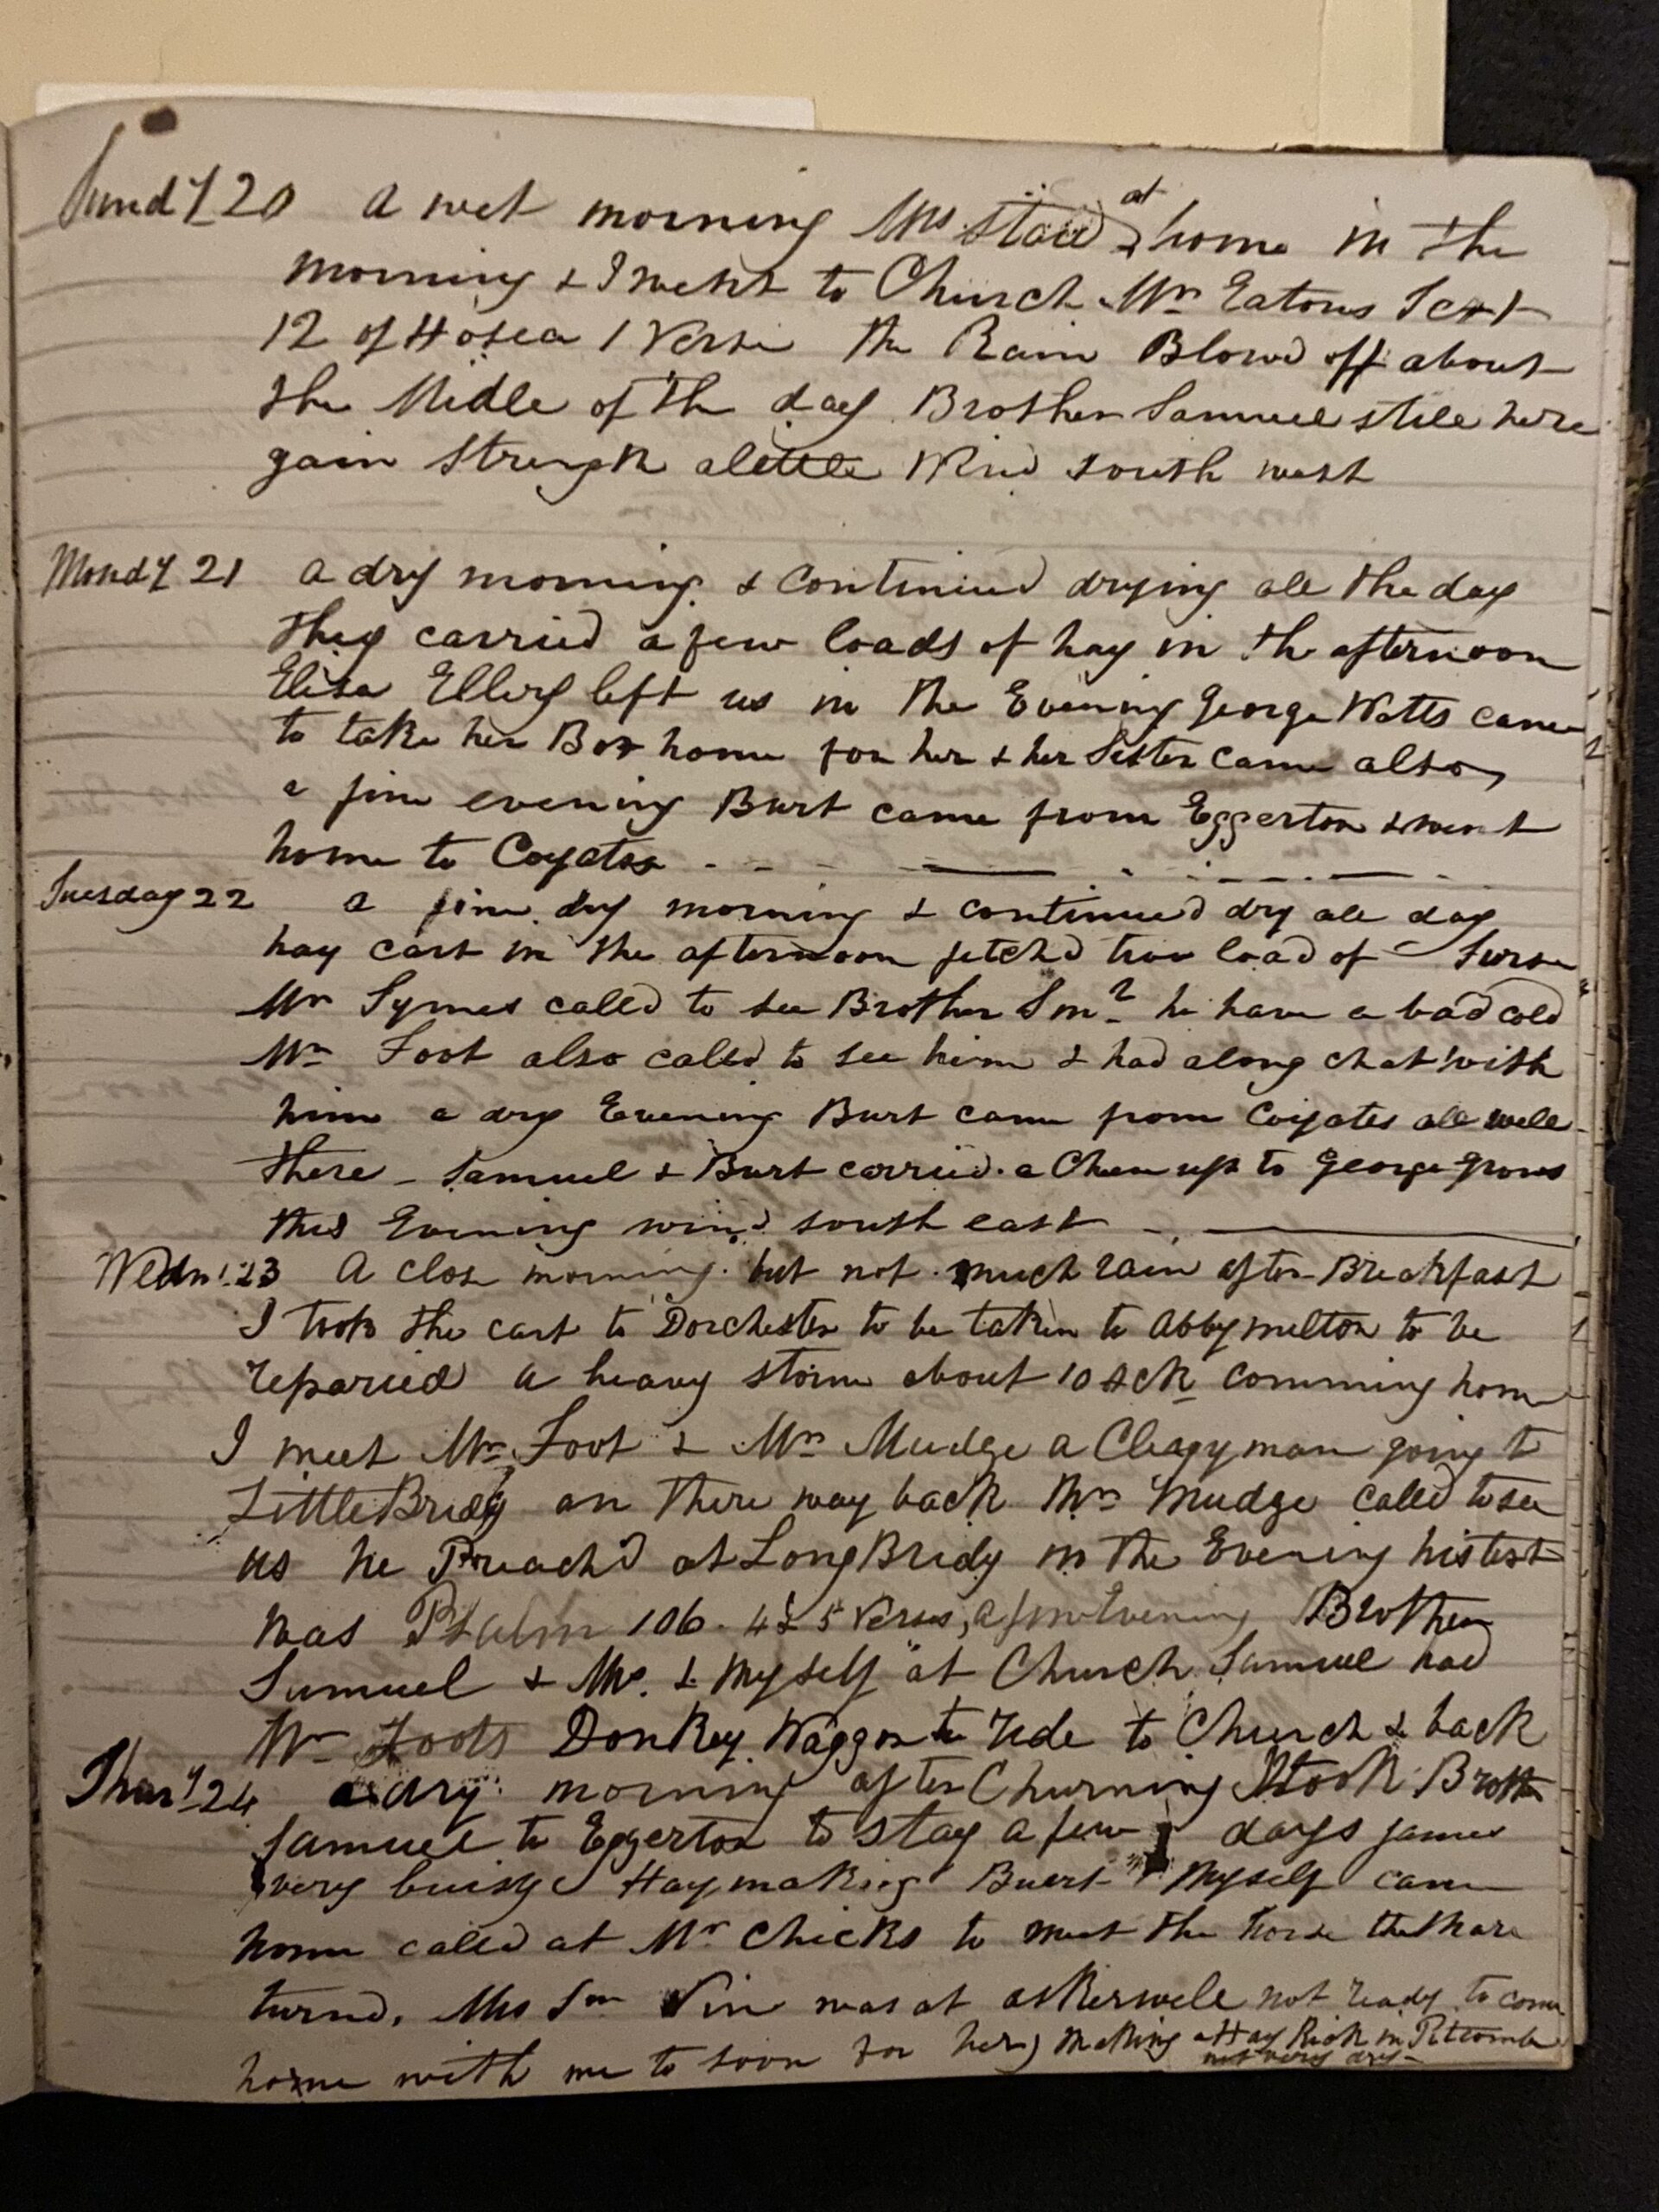 Sundy 20 A wet morning Mrs staid at home in the
morning & I went to Church Mr Eatons Text
12 of Hosea 1 Verse the Rain Blowd off about
the Midle of the day Brother Samuel stile here
gain Strength alittle Wind south west
Mondy 21 a dry morning & Continued drying all the day
they carried a few loads of hay in the afternoon
Eliza Ellery left us in the Evening George Watts came
to take her Box home for her & her Sister came also,
a fine evening Burt came from Eggerton & went
home to Coyates
Tuesday 22 a fine dry morning & continued dry all day
hay cart in the afternoon fetchd two load of Furse
Mr Symes called to see Brother Sml he have a bad cold
Mr Foot also called to see him & had along chat with
him a dry Evening Burt came from Coyates all well
there - Samuel & Burt carried a up to George
this Evening wind south east
Wedn 23 A close morning but not much rain after Breakfast
I took the cart to Dorchester to be taken to Abbymilton to be
reparied a heavy storm about 10 comming home
I meet Mr Foot & Mr Mudge a Clergyman going to
LittleBridy on there way back Mr Mudge called to see
us he Preachd at LongBridy in the Evening his text
was Psalm 106. 4 & 5 Verses, a fine Evening Brother
Samuel & Mrs. & myself at Church Samuel had
Mr Foots Donkey Waggon to ride to Church & back
Thursy 24 a dry morning after Churning I took Brother
Samuel to Eggerton to stay a few days James
very buisy Haymaking Buert & Myself came
home called at Mr Chicks to meet the horse the Mare
turnd, Mrs Sm Vin was at askerwele not ready to come
home with me to soon for her) Making a Hay Rick in Pitcombe
not very dry -